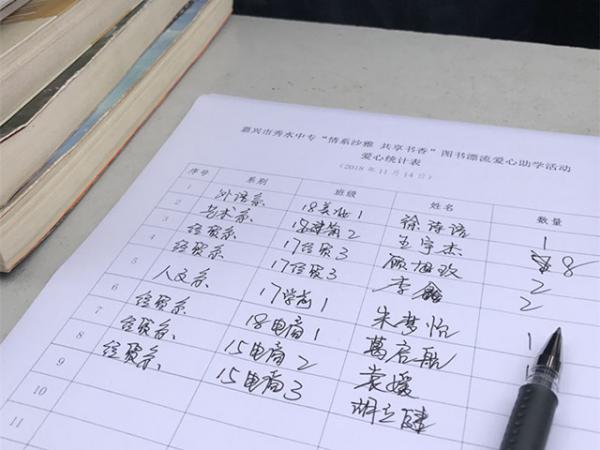 嘉兴市秀水中专“情系沙雅 共享书香”图书漂流爱心助学活动
爱心统计表
(2018年11月14日)
序号 系别 班级 姓名 数量
1 外语系 18美妆1 徐诗语 1
2 艺术系 18建筑2 王宇杰 8
3 经贸系 17经贸3 顾旭政 2
4 经贸系 17经贸3 李鑫 2
5 人文系 17学前1 朱梦怡 1
6 经贸系 18电商1 葛启航 1
7 经贸系 15电商2 袁媛
8 经贸系 15电商3 胡立建
9
10
11